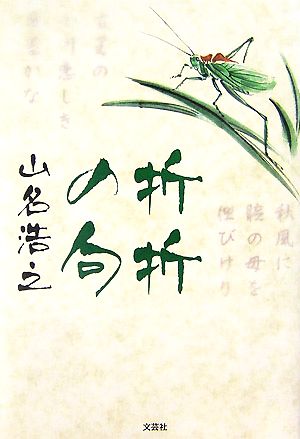 秋風に
瞼の母を
偲びけり
折折
の句
山名浩之
文芸社